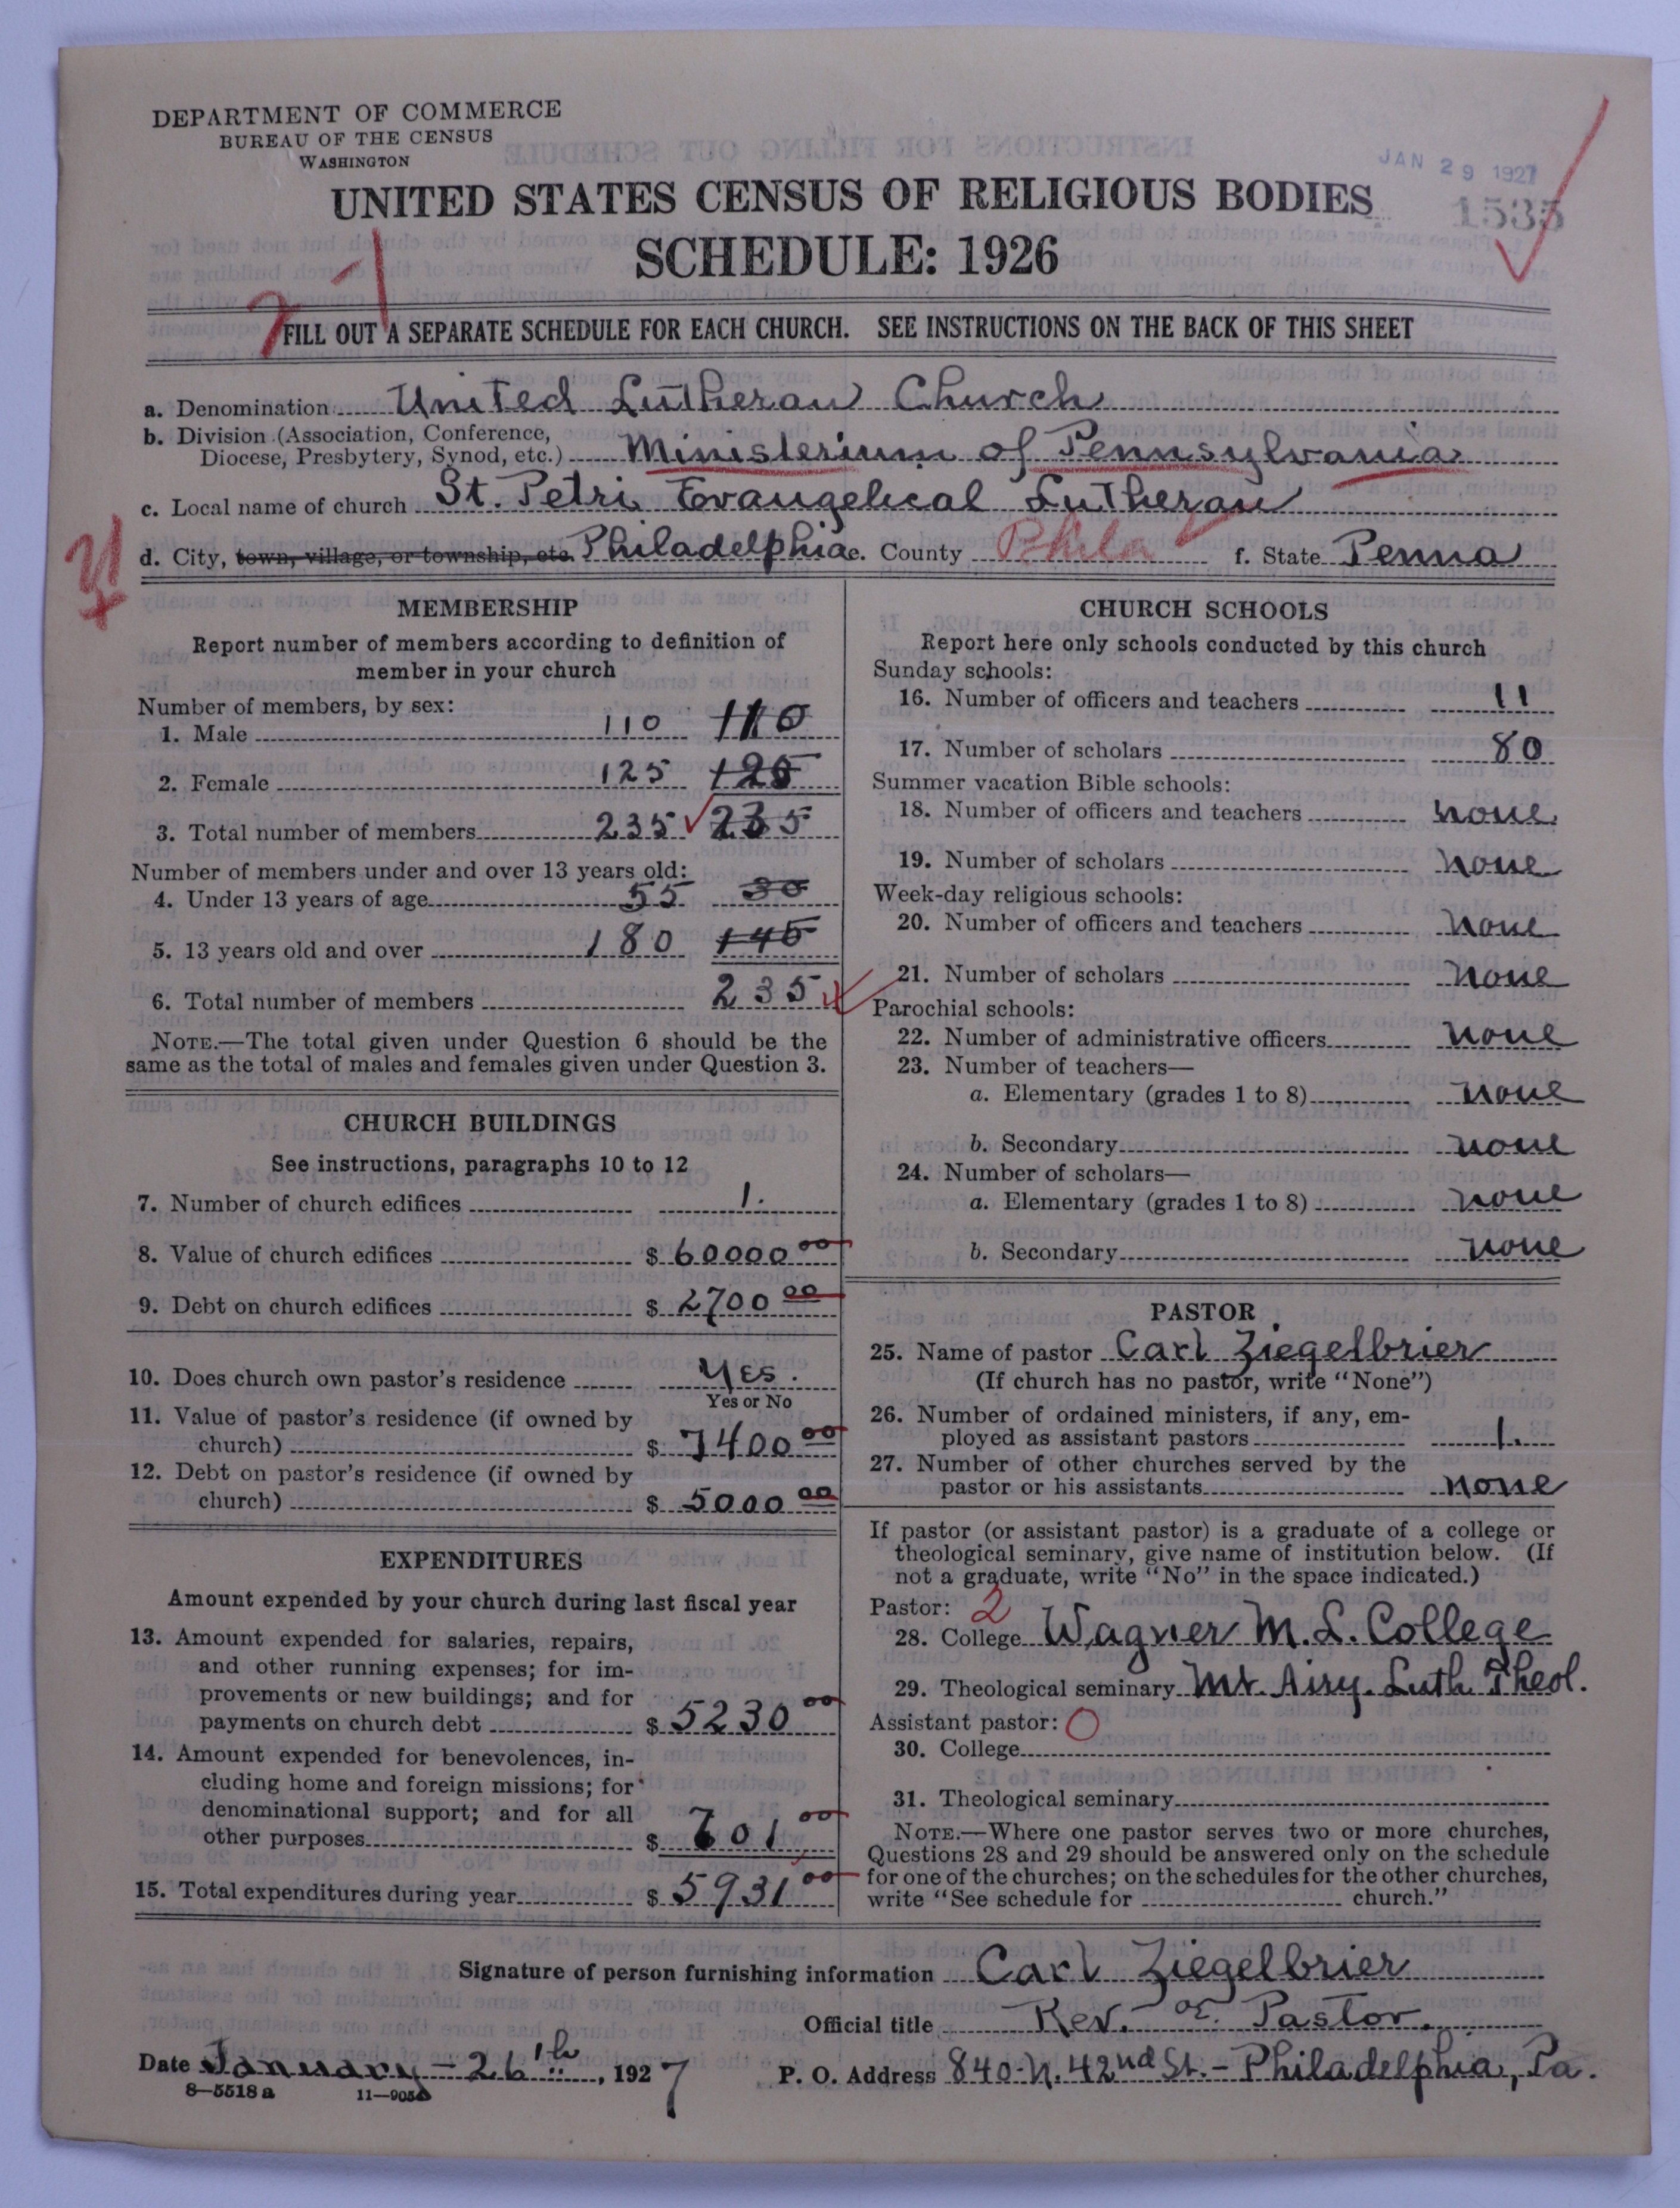 DEPARTMENT OF COMMERCE
BUREAU OF THE CENSUS
WASHINGTON
JAN 29 1927
1535
UNITED STATES CENSUS OF RELIGIOUS BODIES
SCHEDULE: 1926
FILL OUT A SEPARATE SCHEDULE FOR EACH CHURCH. SEE INSTRUCTIONS ON THE BACK OF THIS SHEET
a. Denomination United Lutheran Church
b. Division (Association, Conference,
Diocese, Presbytery, Synod, etc.) Ministerium of Pennsylvania
c. Local name of church St. Petri Evangelical Lutheran
d. City, town, village, or township, etc. Philadelphia e. County Phila f. State Penna
MEMBERSHIP
Report number of members according to definition of
member in your church
Number of members, by sex:
1. Male 110 110
2. Female 125 125
3. Total number of members 235 235
Number of members under and over 13 years old:
4. Under 13 years of age 55 30
5. 13 years old and over 180 145
6. Total number of members 235
NOTE.—The total given under Question 6 should be the
same as the total of males and females given under Question 3.
CHURCH BUILDINGS
See instructions, paragraphs 10 to 12
7. Number of church edifices 1.
8. Value of church edifices $ 60000 00
9. Debt on church edifices $ 2700 00
10. Does church own pastor's residence Yes.
Yes or No
11. Value of pastor's residence (if owned by
church) $ 7400 00
12. Debt on pastor's residence (if owned by
church) $ 5000 00
EXPENDITURES
Amount expended by your church during last fiscal year
13. Amount expended for salaries, repairs,
and other running expenses; for im-
provements or new buildings; and for
payments on church debt $ 5230 00
14. Amount expended for benevolences, in-
cluding home and foreign missions; for
denominational support; and for all
other purposes $ 701 00
15. Total expenditures during year $ 5931 00
CHURCH SCHOOLS
Report here only schools conducted by this church
Sunday schools:
16. Number of officers and teachers 11
17. Number of scholars 80
Summer vacation Bible schools:
18. Number of officers and teachers none.
19. Number of scholars none
Week-day religious schools:
20. Number of officers and teachers none
21. Number of scholars none
Parochial schools:
22. Number of administrative officers none
23. Number of teachers—
a. Elementary (grades 1 to 8) none
b. Secondary none
24. Number of scholars—
a. Elementary (grades 1 to 8) none
b. Secondary none
PASTOR
25. Name of pastor Carl Ziegelbrier
(If church has no pastor, write "None")
26. Number of ordained ministers, if any, em-
ployed as assistant pastors 1.
27. Number of other churches served by the
pastor or his assistants none
If pastor (or assistant pastor) is a graduate of a college or
theological seminary, give name of institution below. (If
not a graduate, write "No" in the space indicated.)
Pastor: 2
28. College Wagner M. L. College
29. Theological seminary Mt. Airy. Luth. Theol.
Assistant pastor: 0
30. College
31. Theological seminary
NOTE.—Where one pastor serves two or more churches,
Questions 28 and 29 should be answered only on the schedule
for one of the churches; on the schedules for the other churches,
write "See schedule for church."
Signature of person furnishing information Carl Ziegelbrier
Official title Rev. or Pastor.
Date January - 26th, 1927 P. O. Address 840-N. 42nd St. - Philadelphia, Pa.
8—5518 a 11—9056